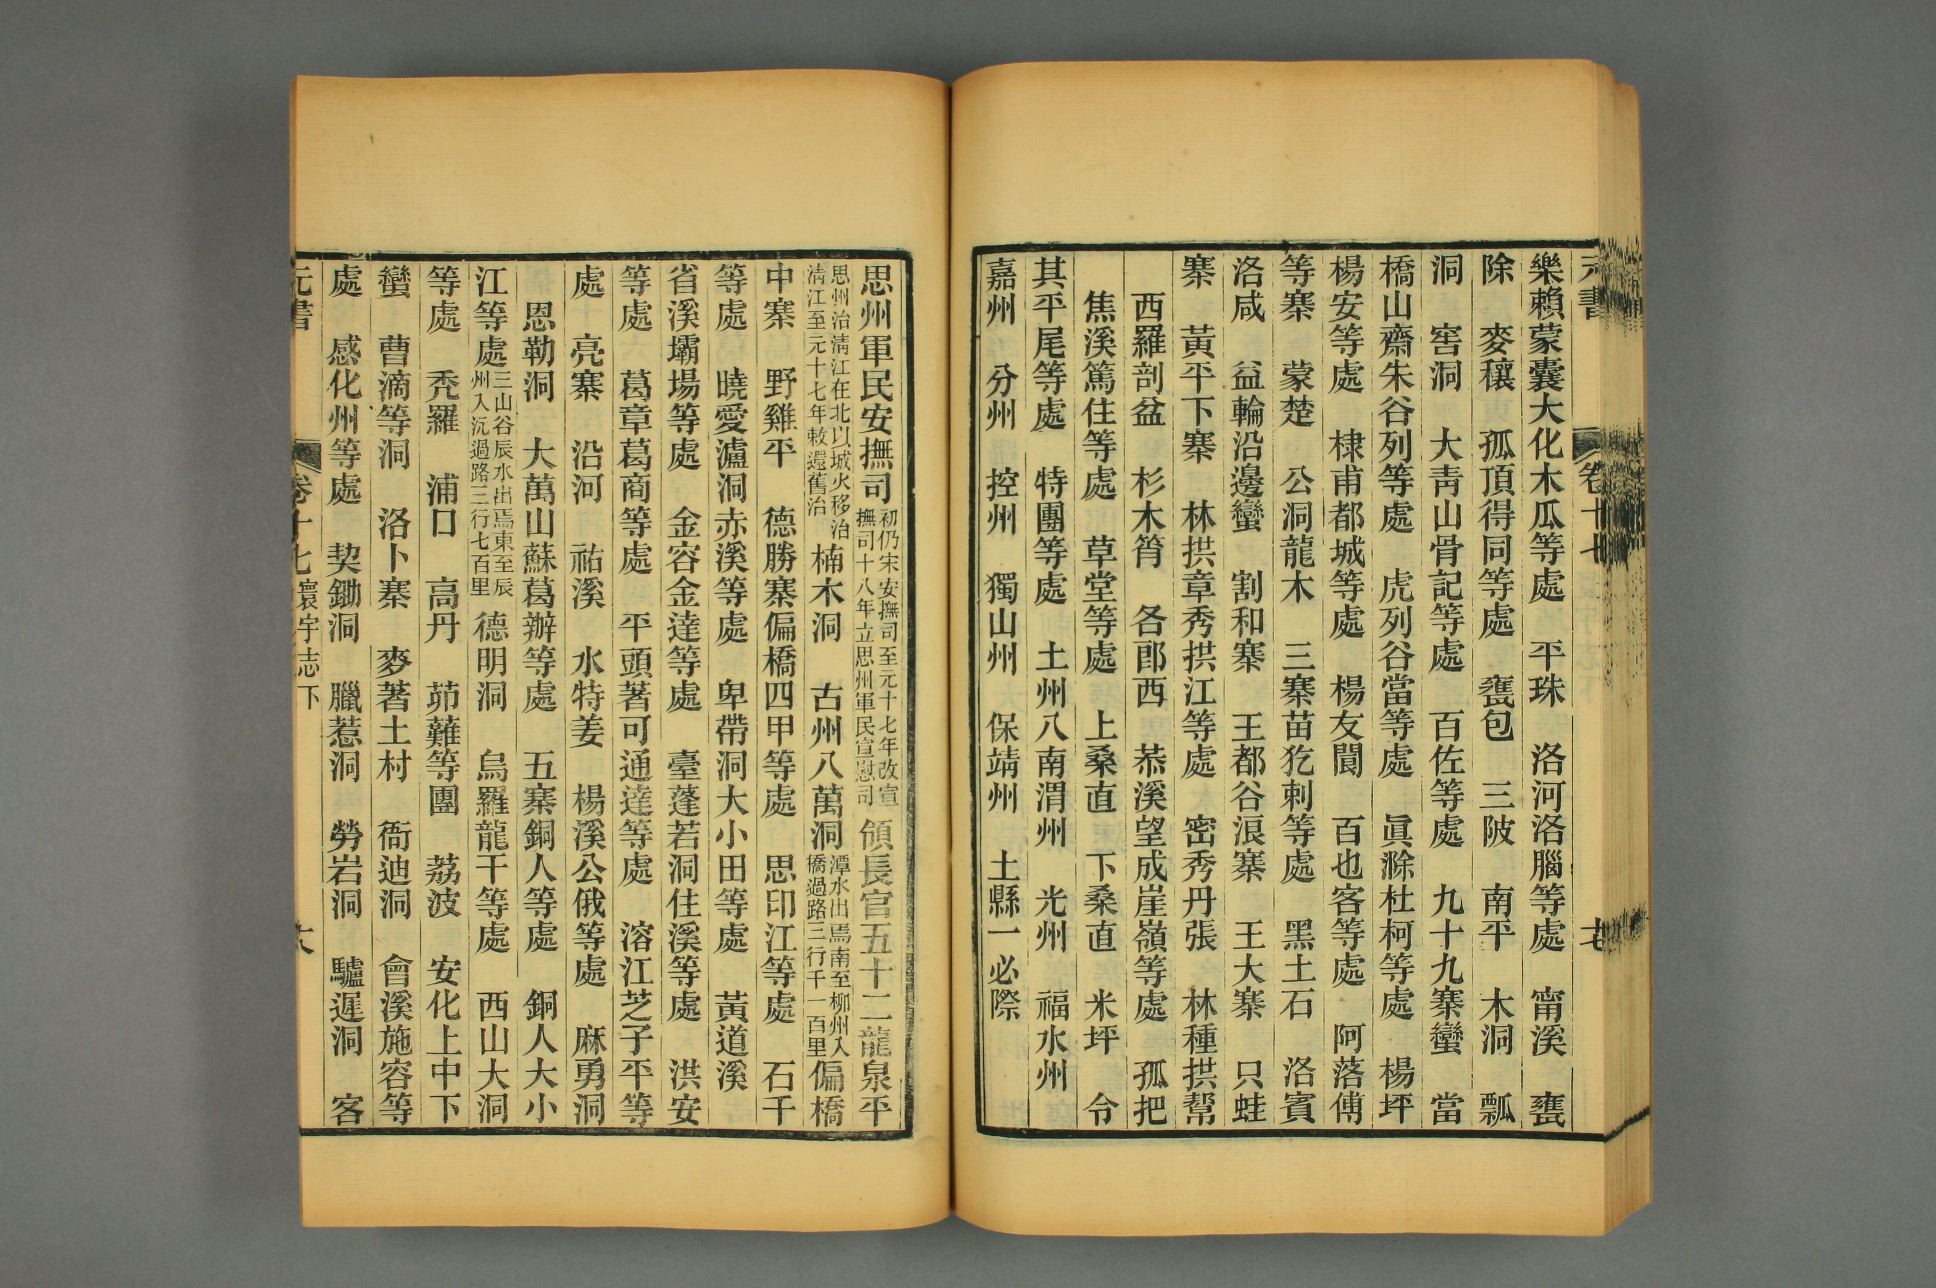 元書 卷十七 十七
樂賴蒙囊大化木瓜等處 平珠 洛河洛腦等處 甯溪 甕
除 麥穰 孤頂得同等處 甕包 三陂 南平 木洞 瓢
洞 窖洞 大靑山骨記等處 百佐等處 九十九寨蠻 當
橋山齋朱谷列等處 虎列谷當等處 眞滁杜柯等處 楊坪
楊安等處 棣甫都城等處 楊友閬 百也客等處 阿落傅
等寨 蒙楚 公洞龍木 三寨苗犵剌等處 黑土石 洛賓
洛咸 益輪沿邊蠻 割和寨 王都谷浪寨 王大寨 只蛙
寨 黃平下寨 林拱章秀拱江等處 密秀丹張 林種拱幫
西羅剖盆 杉木筲 各郎西 恭溪望成崖嶺等處 孤把
焦溪篤住等處 草堂等處 上桑直 下桑直 米坪 令
其平尾等處 特團等處 土州八南渭州 光州 福水州
嘉州 分州 控州 獨山州 保靖州 土縣一必際
思州軍民安撫司初仍宋安撫司至元十七年改宣撫司十八年立思州軍民宣慰司領長官五十二龍泉平
思州治淸江在北以城火移治淸江至元十七年敕還舊治 楠木洞 古州八萬洞潭水出焉南至柳州入僑過路三行千一百里偏橋
中寨 野雞平 德勝寨偏橋四甲等處 思印江等處 石千
等處 曉愛瀘洞赤溪等處 卑帶洞大小田等處 黃道溪
省溪壩場等處 金容金達等處 臺蓬若洞住溪等處 洪安
等處 葛章葛商等處 平頭著可通達等處 溶江芝子平等
處 亮寨 沿河 祐溪 水特姜 楊溪公俄等處 麻勇洞
恩勒洞 大萬山蘇葛辦等處 五寨銅人等處 銅人大小
江等處三山谷辰水出焉東至辰州入沅過路三行七百里 德明洞 烏羅龍干等處 西山大洞
等處 禿羅 浦口 高丹 茆蘺等團 荔波 安化上中下
蠻 曹滴等洞 洛卜寨 麥著土村 衙迪洞 會溪施容等
處 感化州等處 契鋤洞 臘惹洞 勞岩洞 驢遲洞 客
元書 卷十七寰宇志下 十八